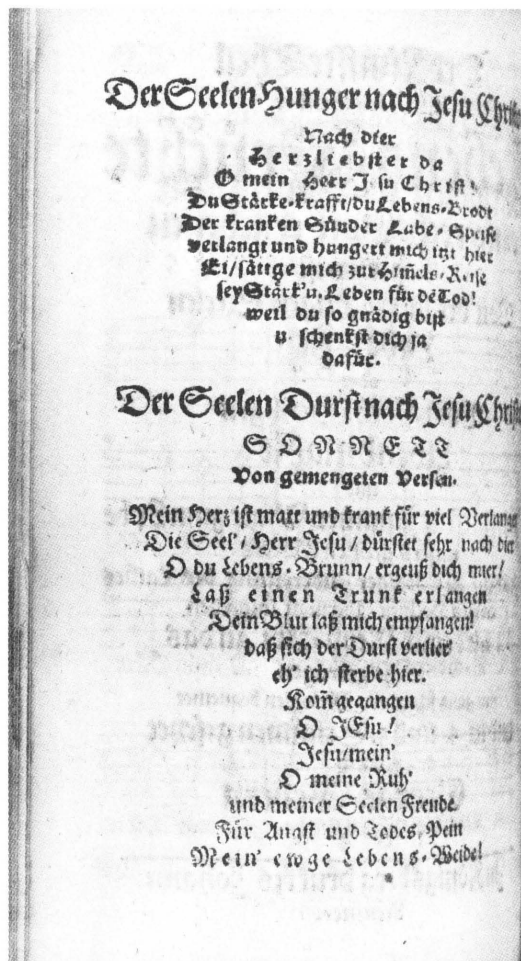 Der Seelen-Hunger nach Jesu
Nach dier
Herzliebster da
O mein Herr Jesu Christ!
Du Stärke-krafft/du Lebens-Brodt
Der kranken Sünder Labe-Speise
verlangt und hungert mich itzt hier
Ei/sättge mich zur Him̃els-Reise
sey Stärk' u. Leben für dẽ Tod!
weil du so gnädig bist
u. schenkst dich ja
dafür.
Der Seelen Durst nach Jesu
SONNETT
von gemengeten Versen.
Mein Herz ist matt und krank für viel
Die Seel'/Herr Jesu/dürstet sehr nach dir
O du Lebens-Brunn/ergeuß dich mier!
Laß einen Trunk erlangen
Dein Blut laß mich empfangen!
daß sich der Durst verlier'
eh' ich sterbe hier.
Kom̃ gegangen
O JEsu!
Jesu/mein'
O meine Ruh'
und meiner Seelen Freude
Für Angst und Todes-Pein
Mein' ewge Lebens-Weide!